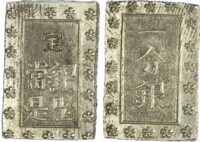 定
銀座
常是
一分銀